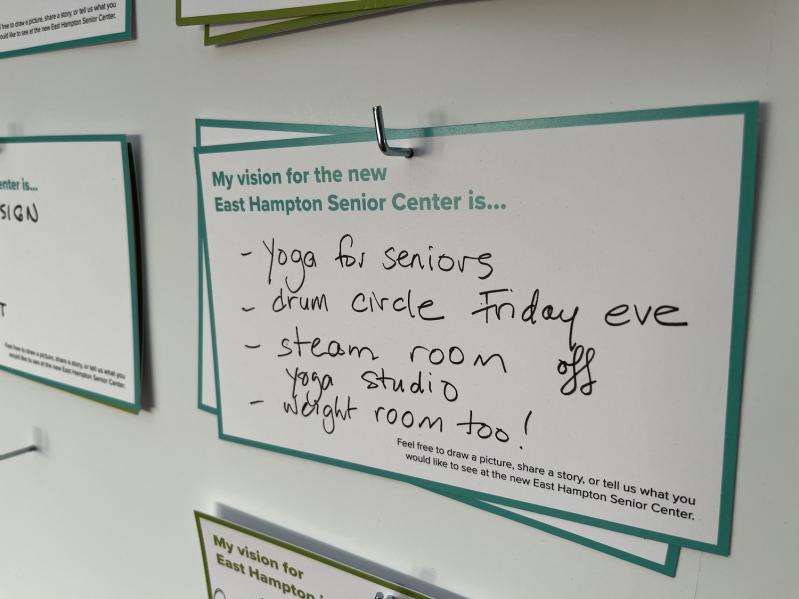 free to draw a picture, share a story, or tell us what you
would like to see at the new East Hampton Senior Center.
enter is...
SIGN
Feel free to draw a picture, share a story, or tell us what you
would like to see at the new East Hampton Senior Center.
My vision for the new
East Hampton Senior Center is...
- Yoga for seniors
- drum circle Friday eve
- steam room off
yoga studio
- weight room too!
Feel free to draw a picture, share a story, or tell us what you
would like to see at the new East Hampton Senior Center.
My vision for
East Hampton